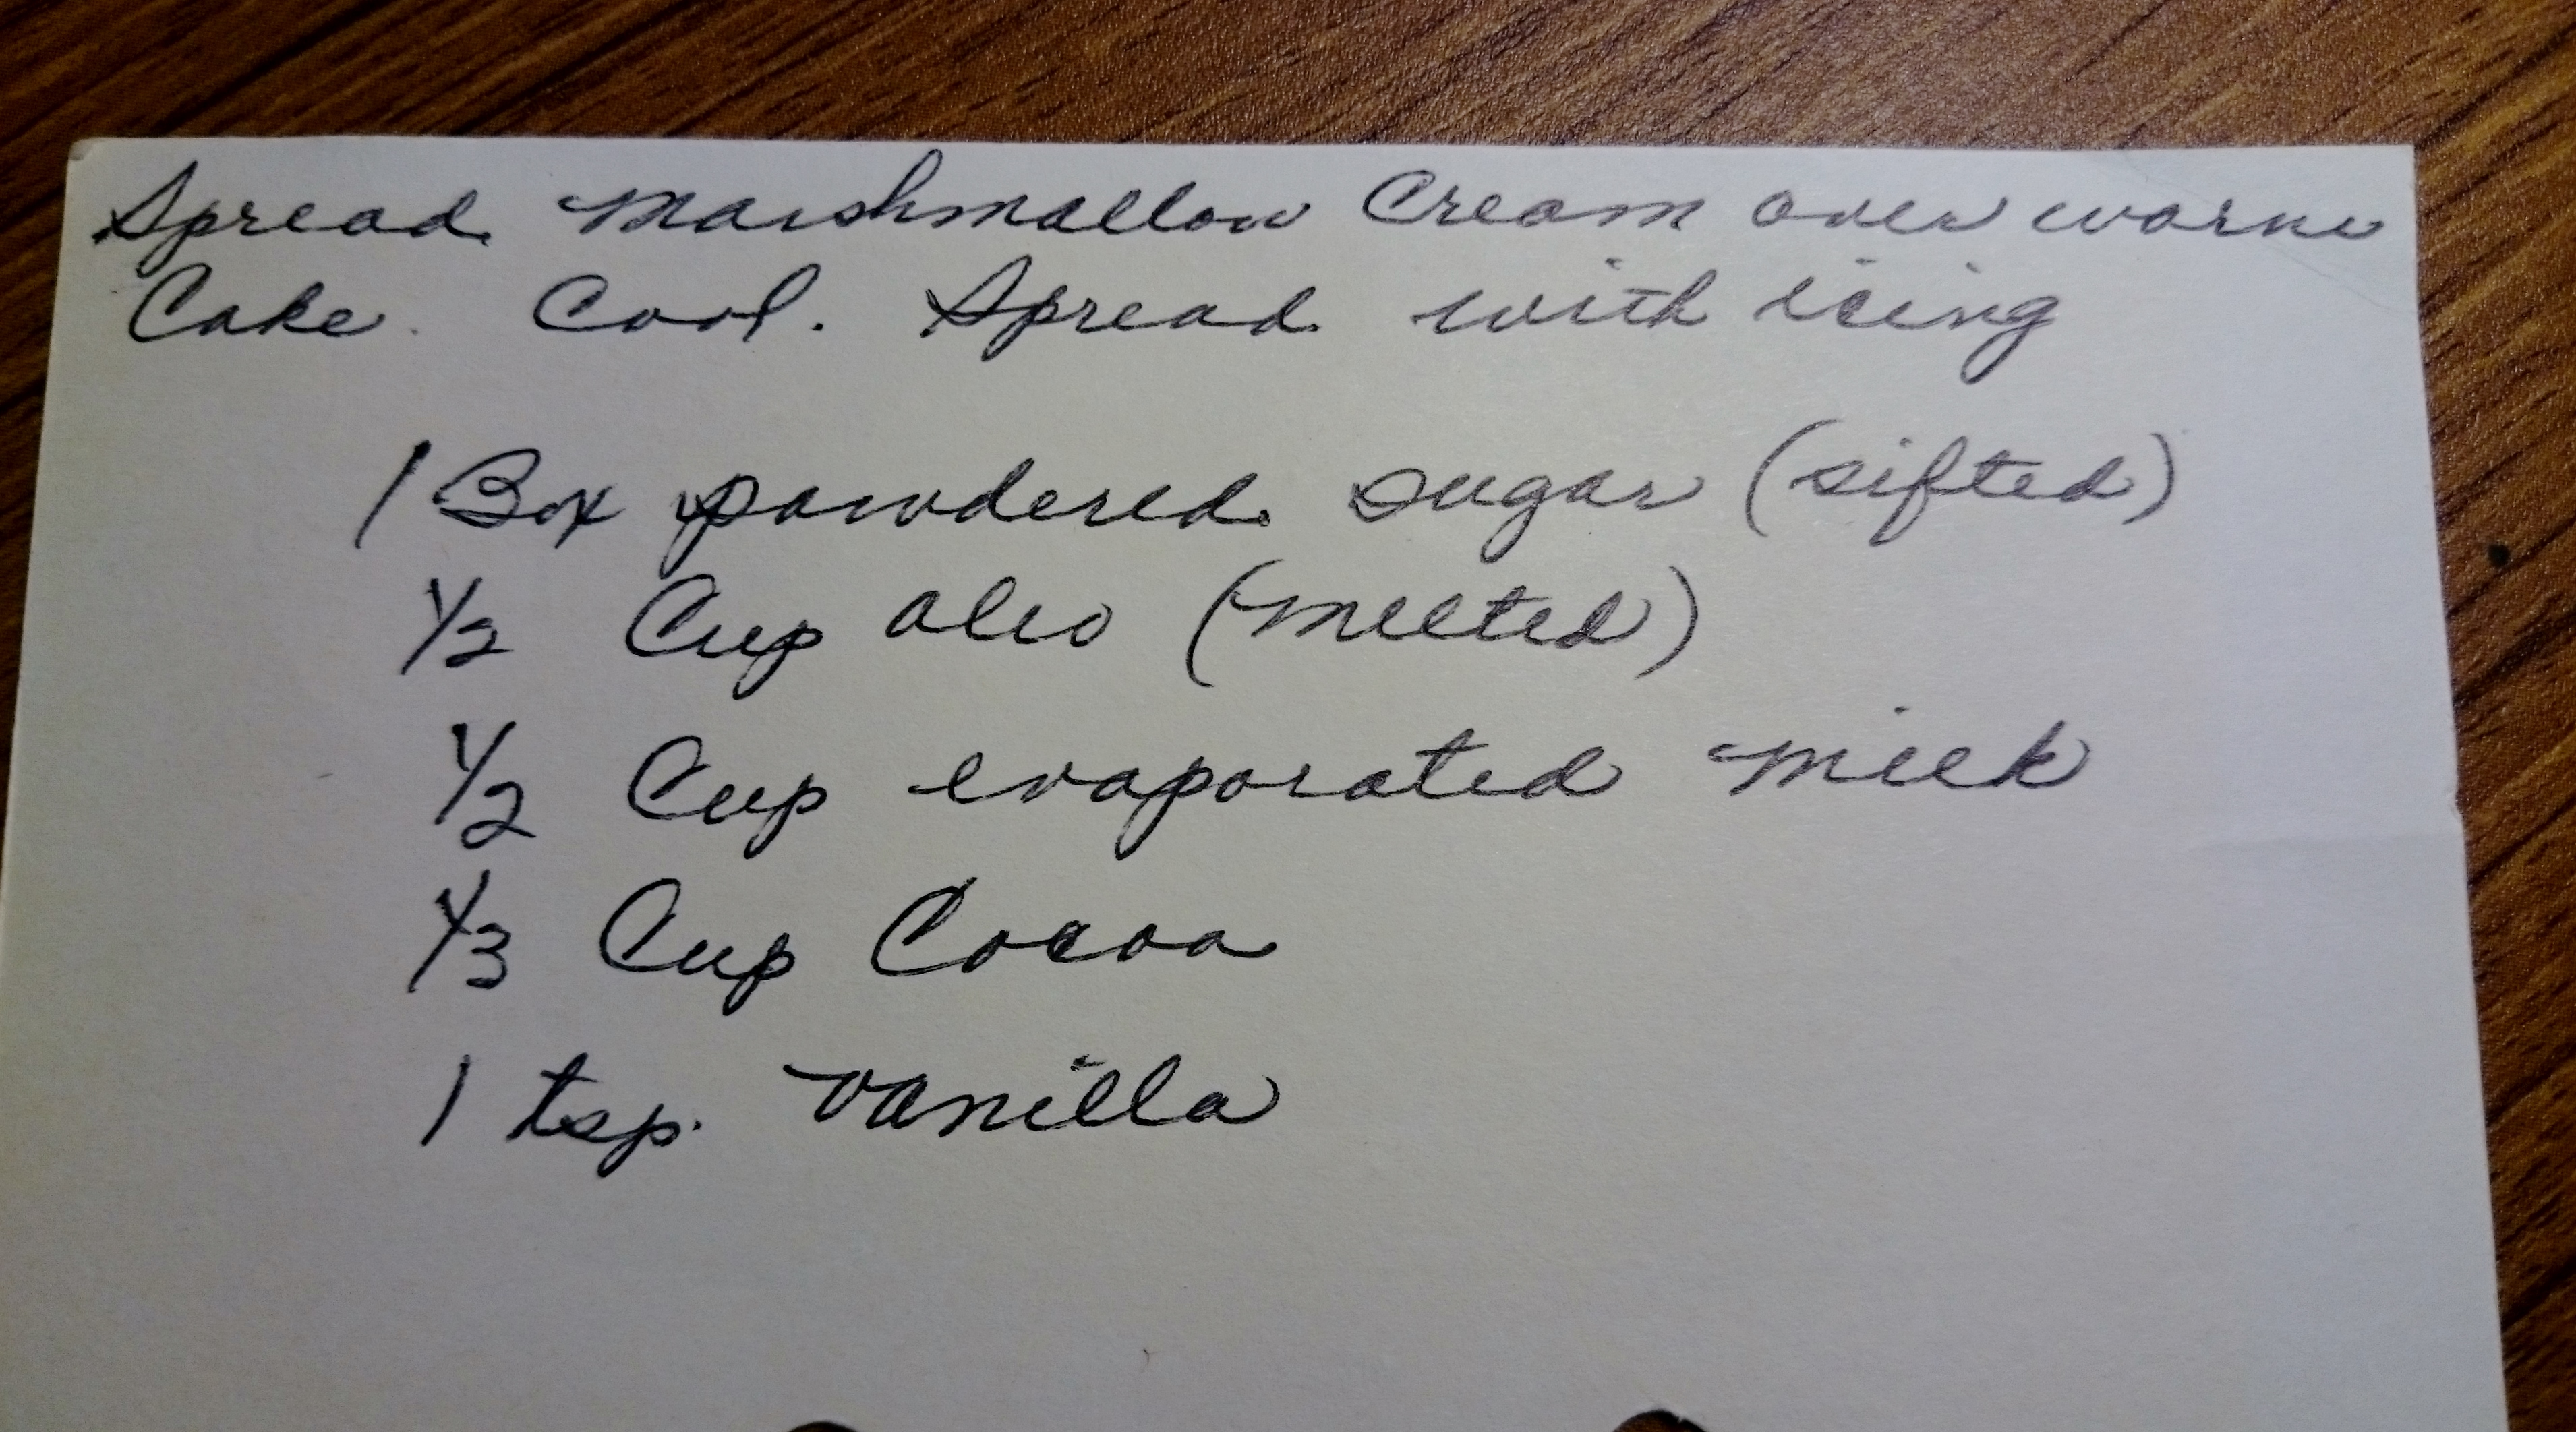 Spread Marshmallow Cream over warm
Cake. Cool. Spread with icing
1 Box powdered sugar (sifted)
1/2 Cup oleo (melted)
1/2 Cup evaporated milk
1/3 Cup Cocoa
1 tsp. vanilla